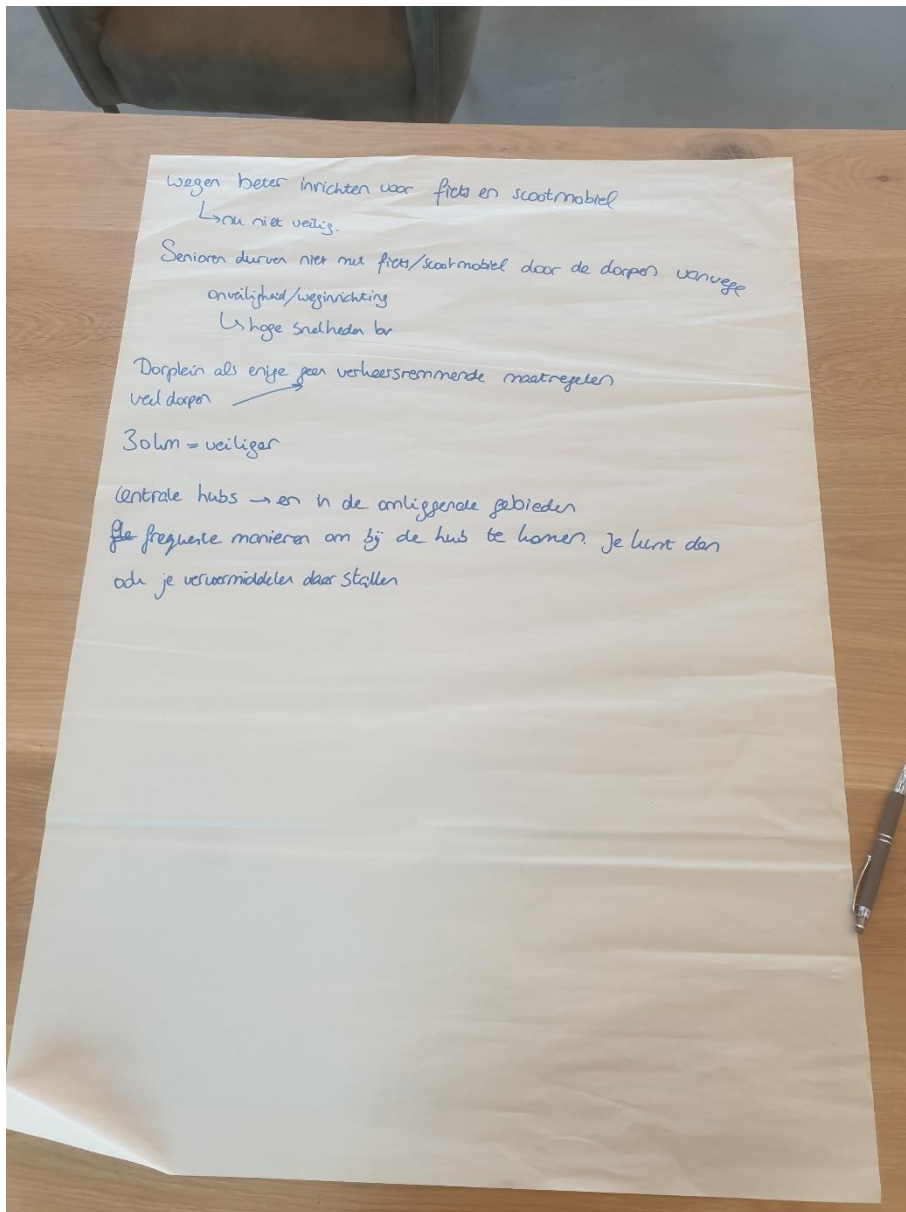 wegen beter inrichten voor fiets en scootmobiel
↳ nu niet veilig.
Senioren durven niet met fiets/scootmobiel door de dorpen vanwege
onveiligheid/weginrichting
↳ hoge snelheden bv
Dorplein als enige geen verkeersremmende maatregelen
veel dorpen
30km = veiliger
Centrale hubs → en in de omliggende gebieden
frequente manieren om bij de hub te komen. Je kunt dan
ook je vervoermiddelen daar stallen